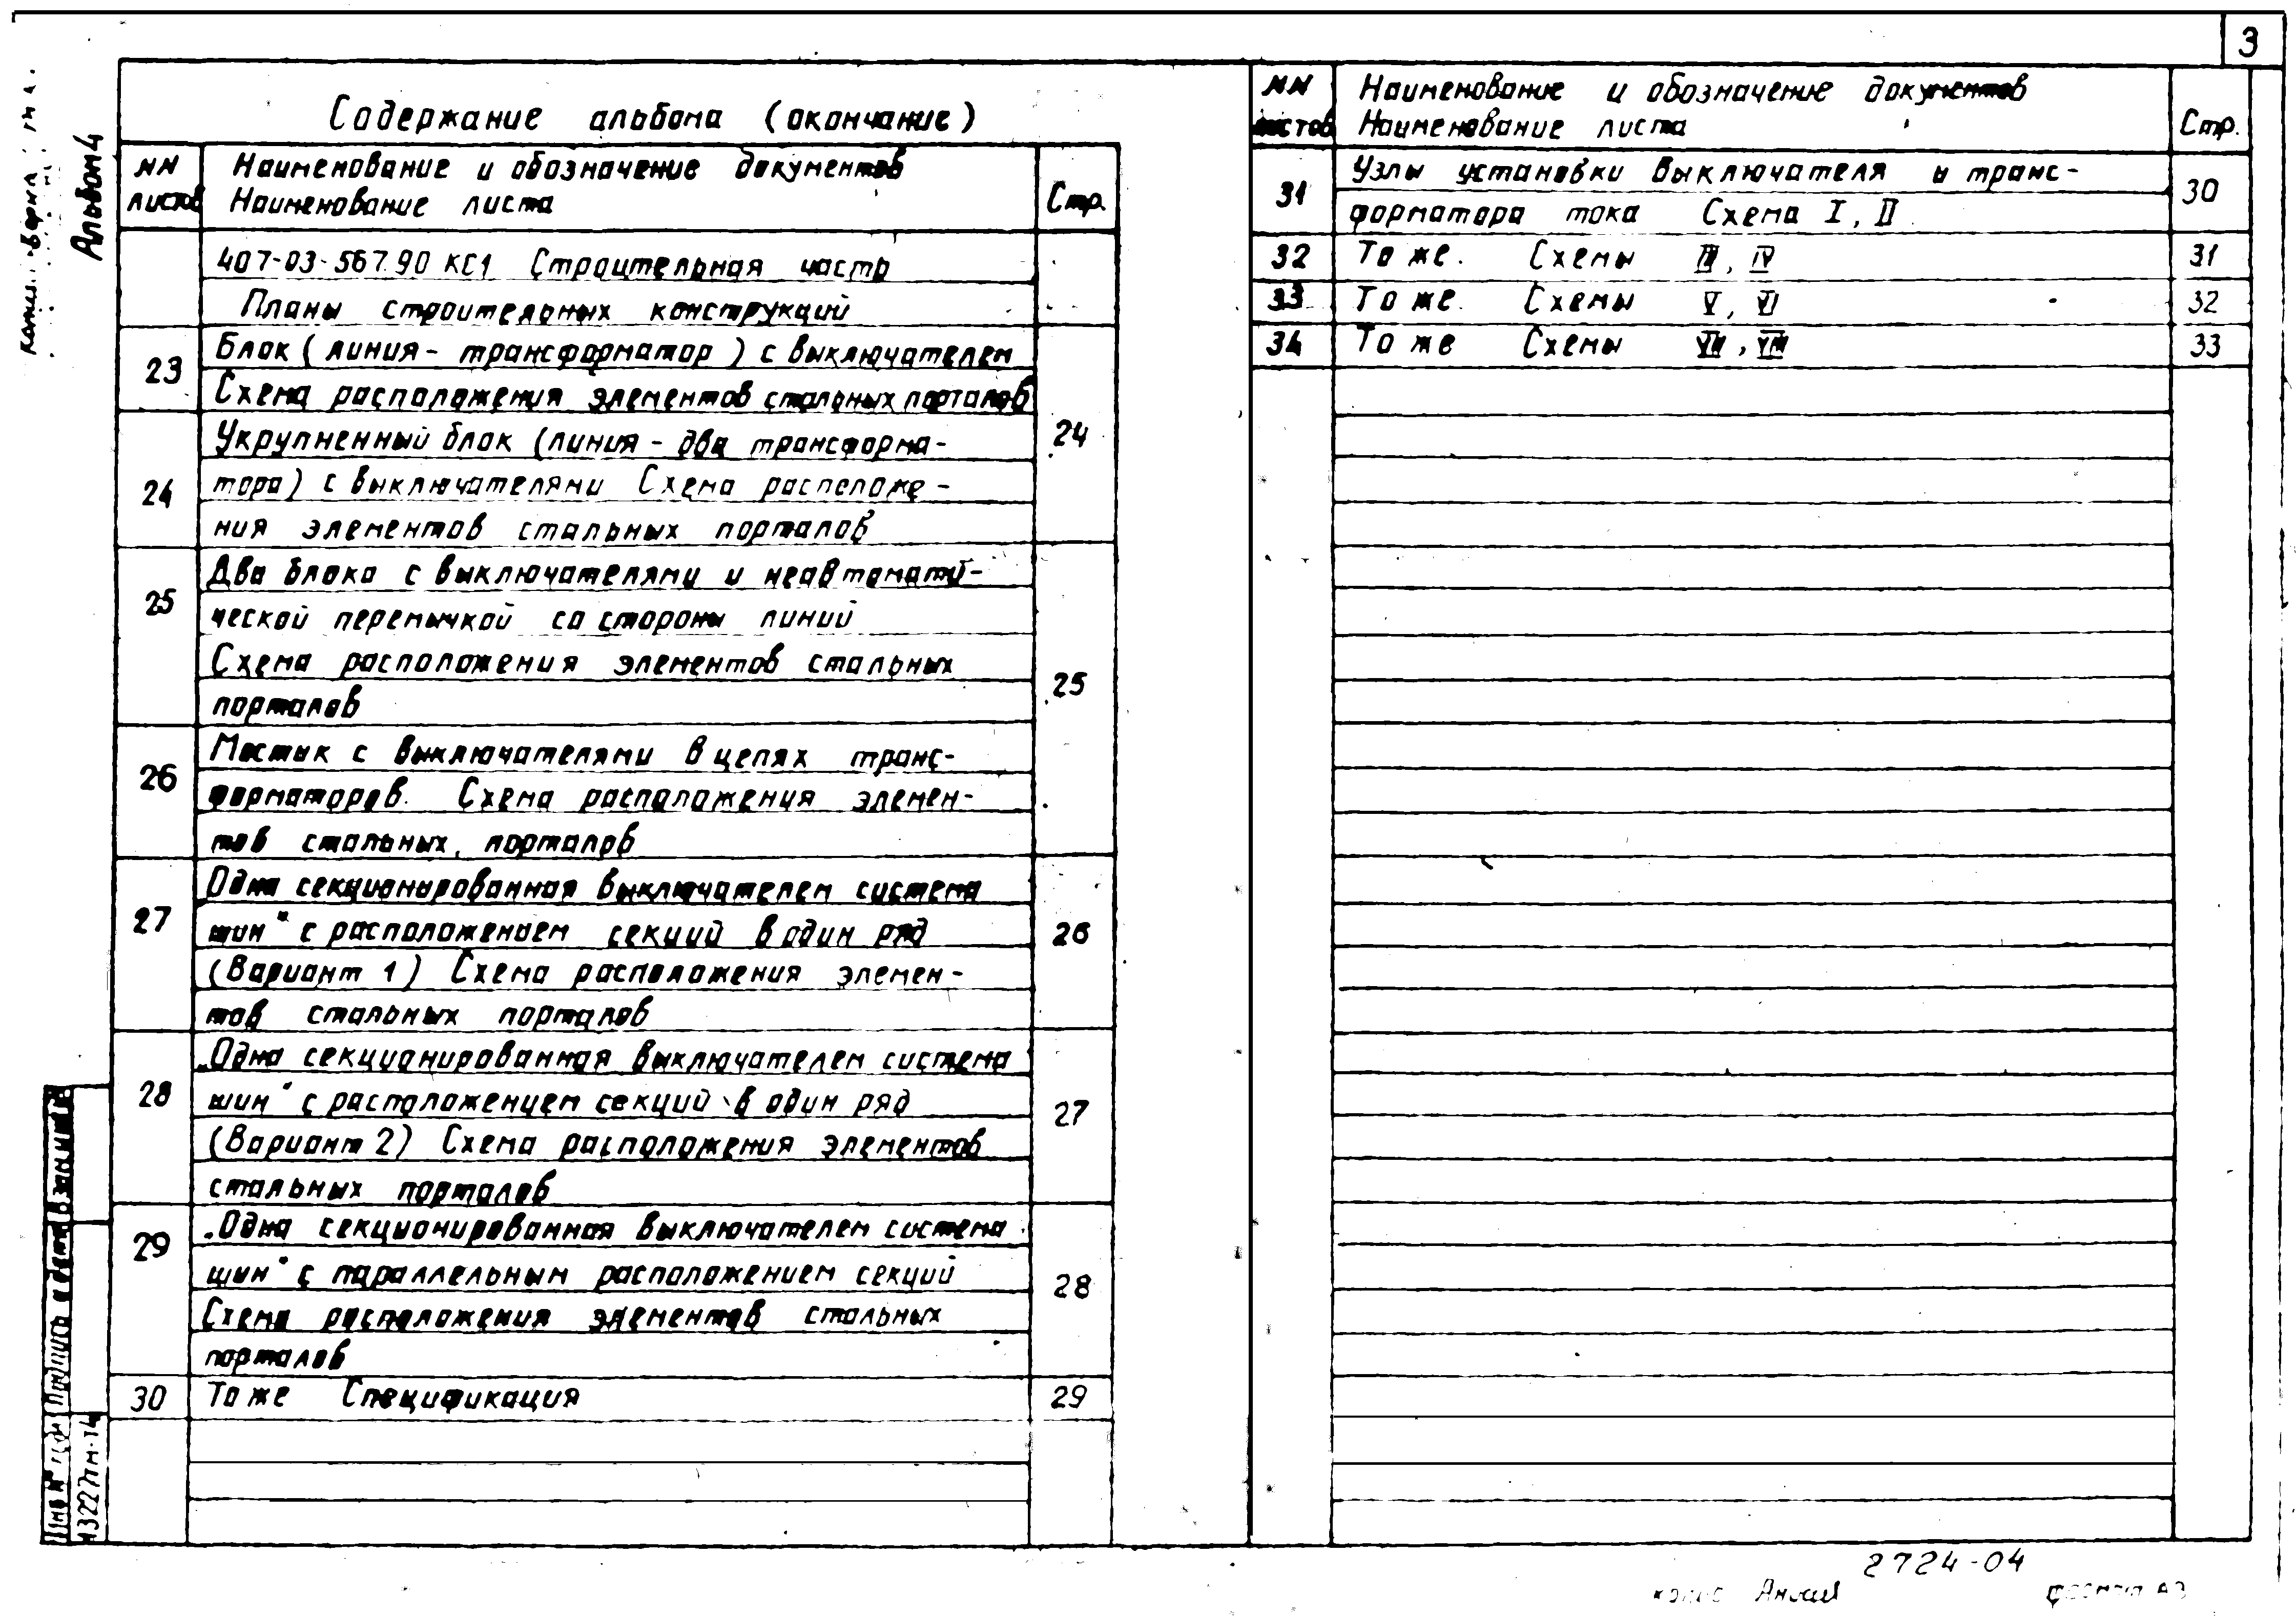 3
Альбом 4
Содержание альбома (окончание)
NN листов
Наименование и обозначение документов
Наименование листа
Стр.
407-03-567.90 КС1 Строительная часть
Планы строительных конструкций
23
Блок (линия - трансформатор) с выключателем
Схема расположения элементов стальных порталов
24
Укрупненный блок (линия - два трансформа-
тора) с выключателями Схема расположе-
ния элементов стальных порталов
24
25
Два блока с выключателями и неавтомати-
ческой перемычкой со стороны линий
Схема расположения элементов стальных
порталов
25
26
Мостик с выключателями в цепях транс-
форматоров. Схема расположения элемен-
тов стальных порталов
27
Одна секционированная выключателем система
шин" с расположением секций в один ряд
(Вариант 1) Схема расположения элемен-
тов стальных порталов
26
28
„Одна секционированная выключателем система
шин" с расположением секций в один ряд
(Вариант 2) Схема расположения элементов
стальных порталов
27
29
„Одна секционированная выключателем система
шин" с параллельным расположением секций
Схема расположения элементов стальных
порталов
28
30 То же Спецификация 29
NN листов
Наименование и обозначение документов
Наименование листа
Стр.
31
Узлы установки выключателя и транс-
форматора тока Схема I, II
30
32 То же. Схемы III, IV 31
33 То же. Схемы V, VI 32
34 То же Схемы VII, VIII 33
Подпись и дата
Взам инв
2724-04
формат А3